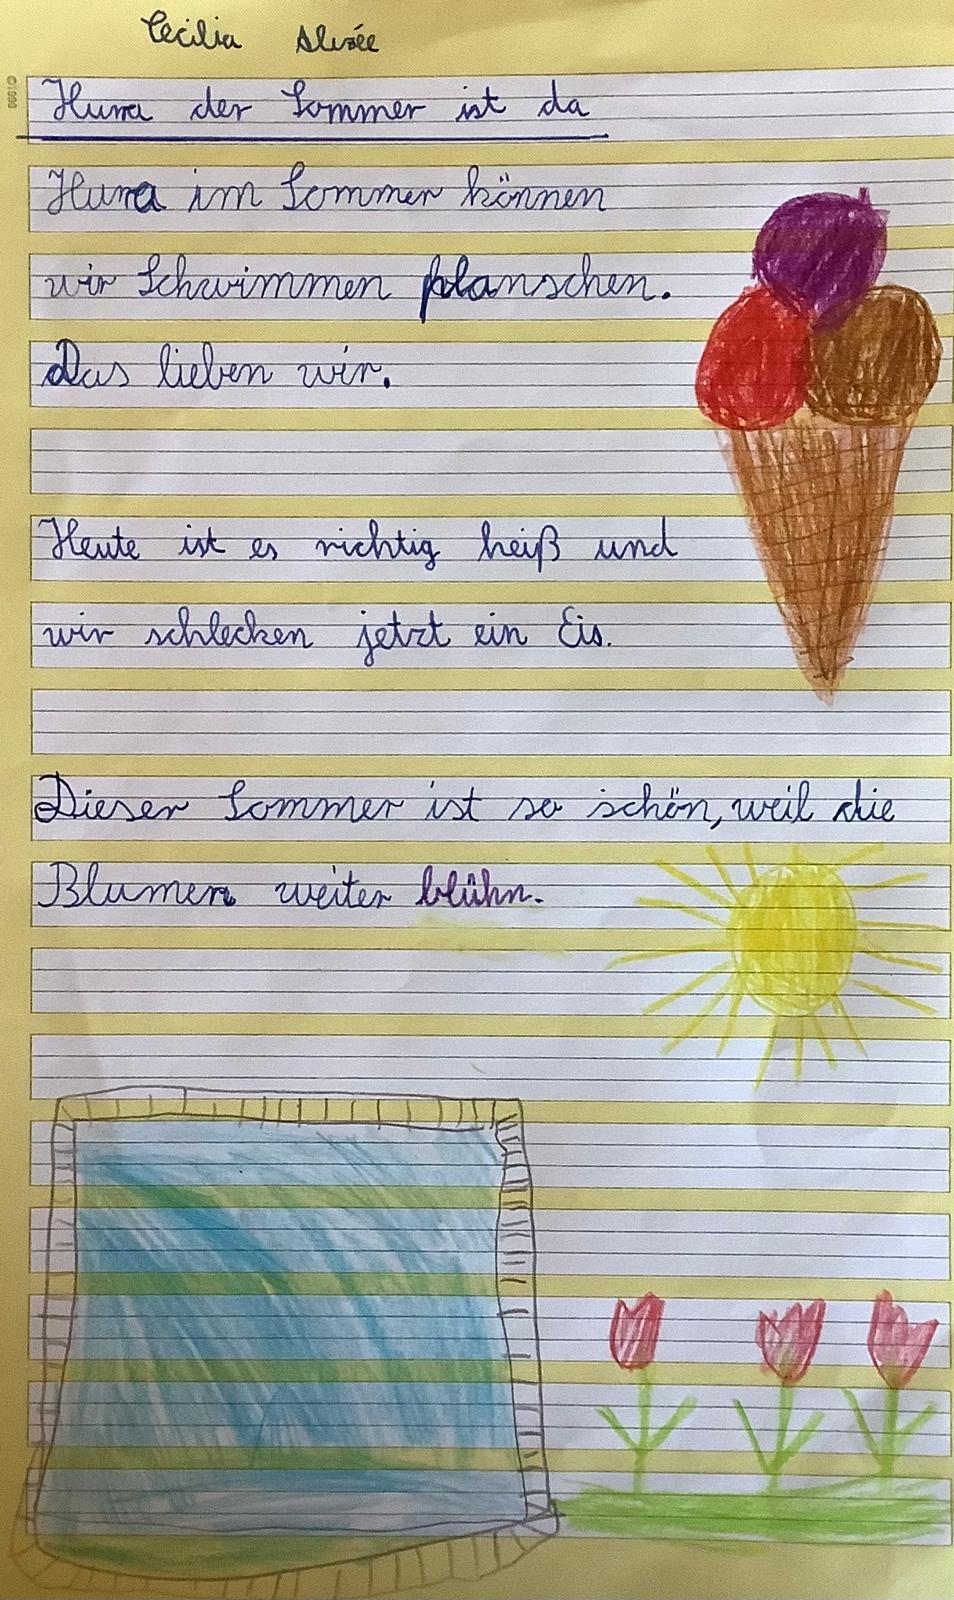 Cecilia Alizée
Hurra der Sommer ist da
Hurra im Sommer können
wir Schwimmen planschen.
Das lieben wir.
Heute ist es richtig heiß und
wir schlecken jetzt ein Eis.
Dieser Sommer ist so schön, weil die
Blumen weiter blühn.